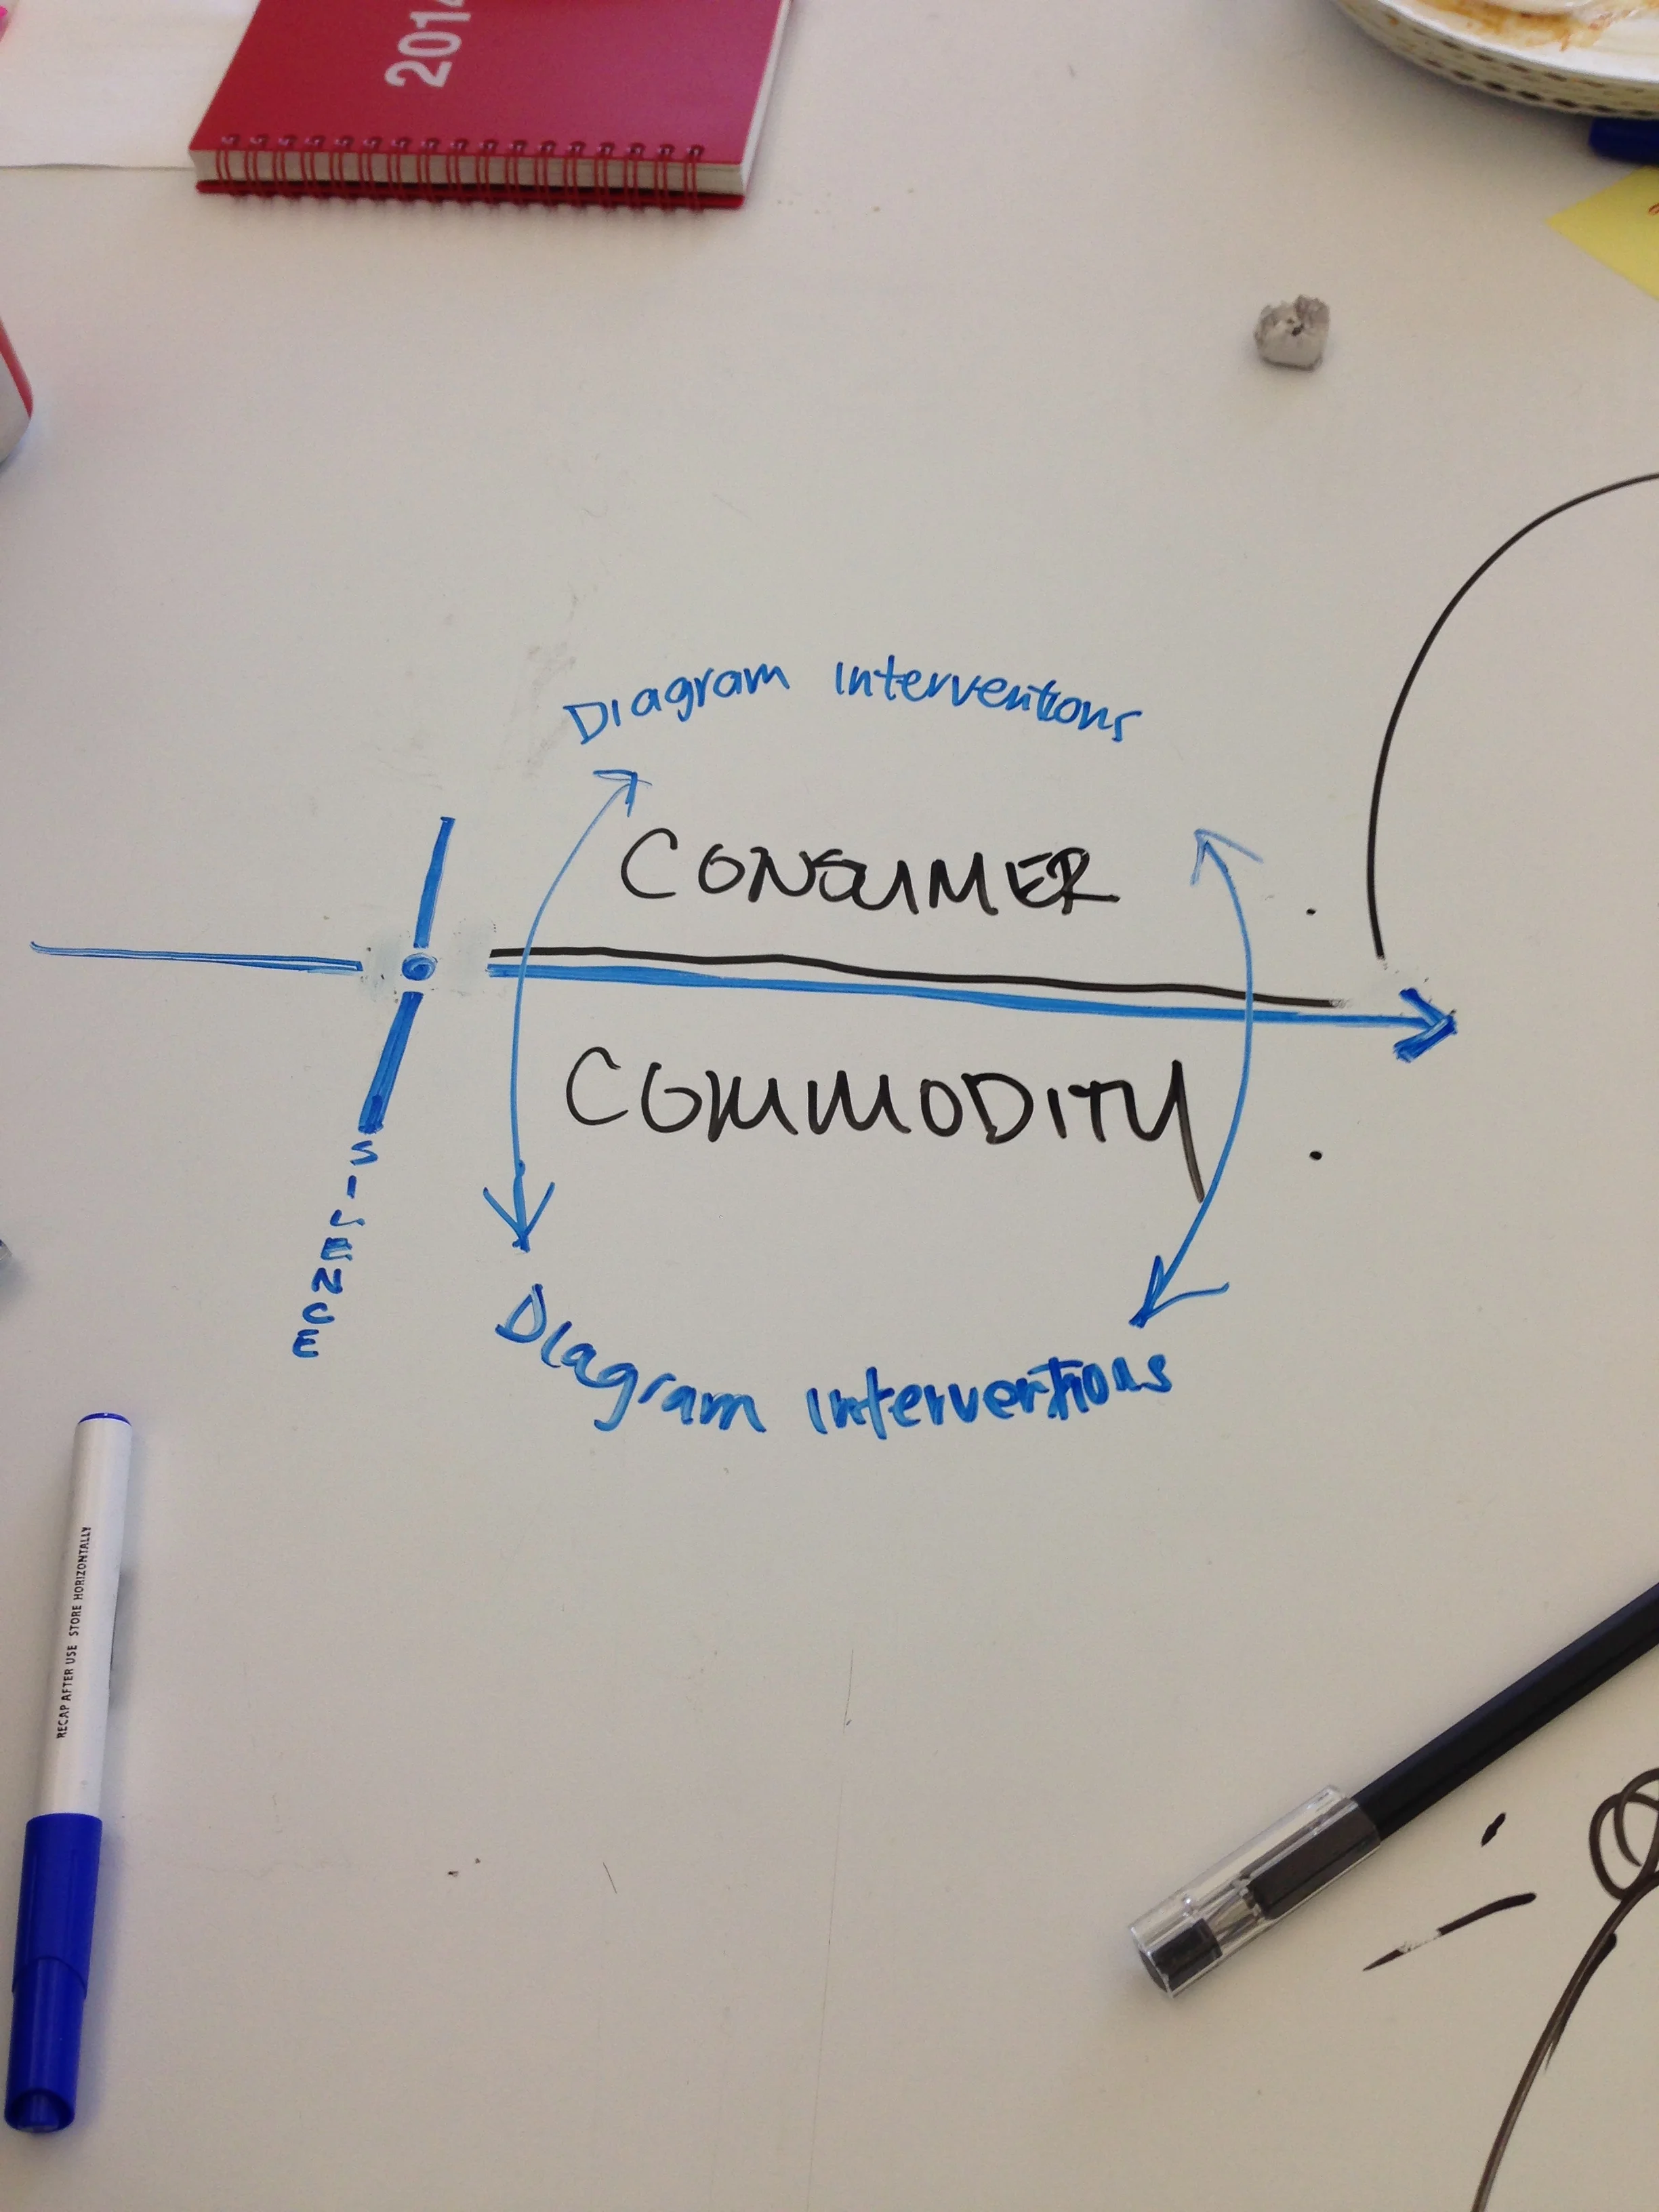 2014
Diagram Interventions
CONSUMER
COMMODITY
SILENCE
Diagram Interventions
RECAP AFTER USE STORE HORIZONTALLY